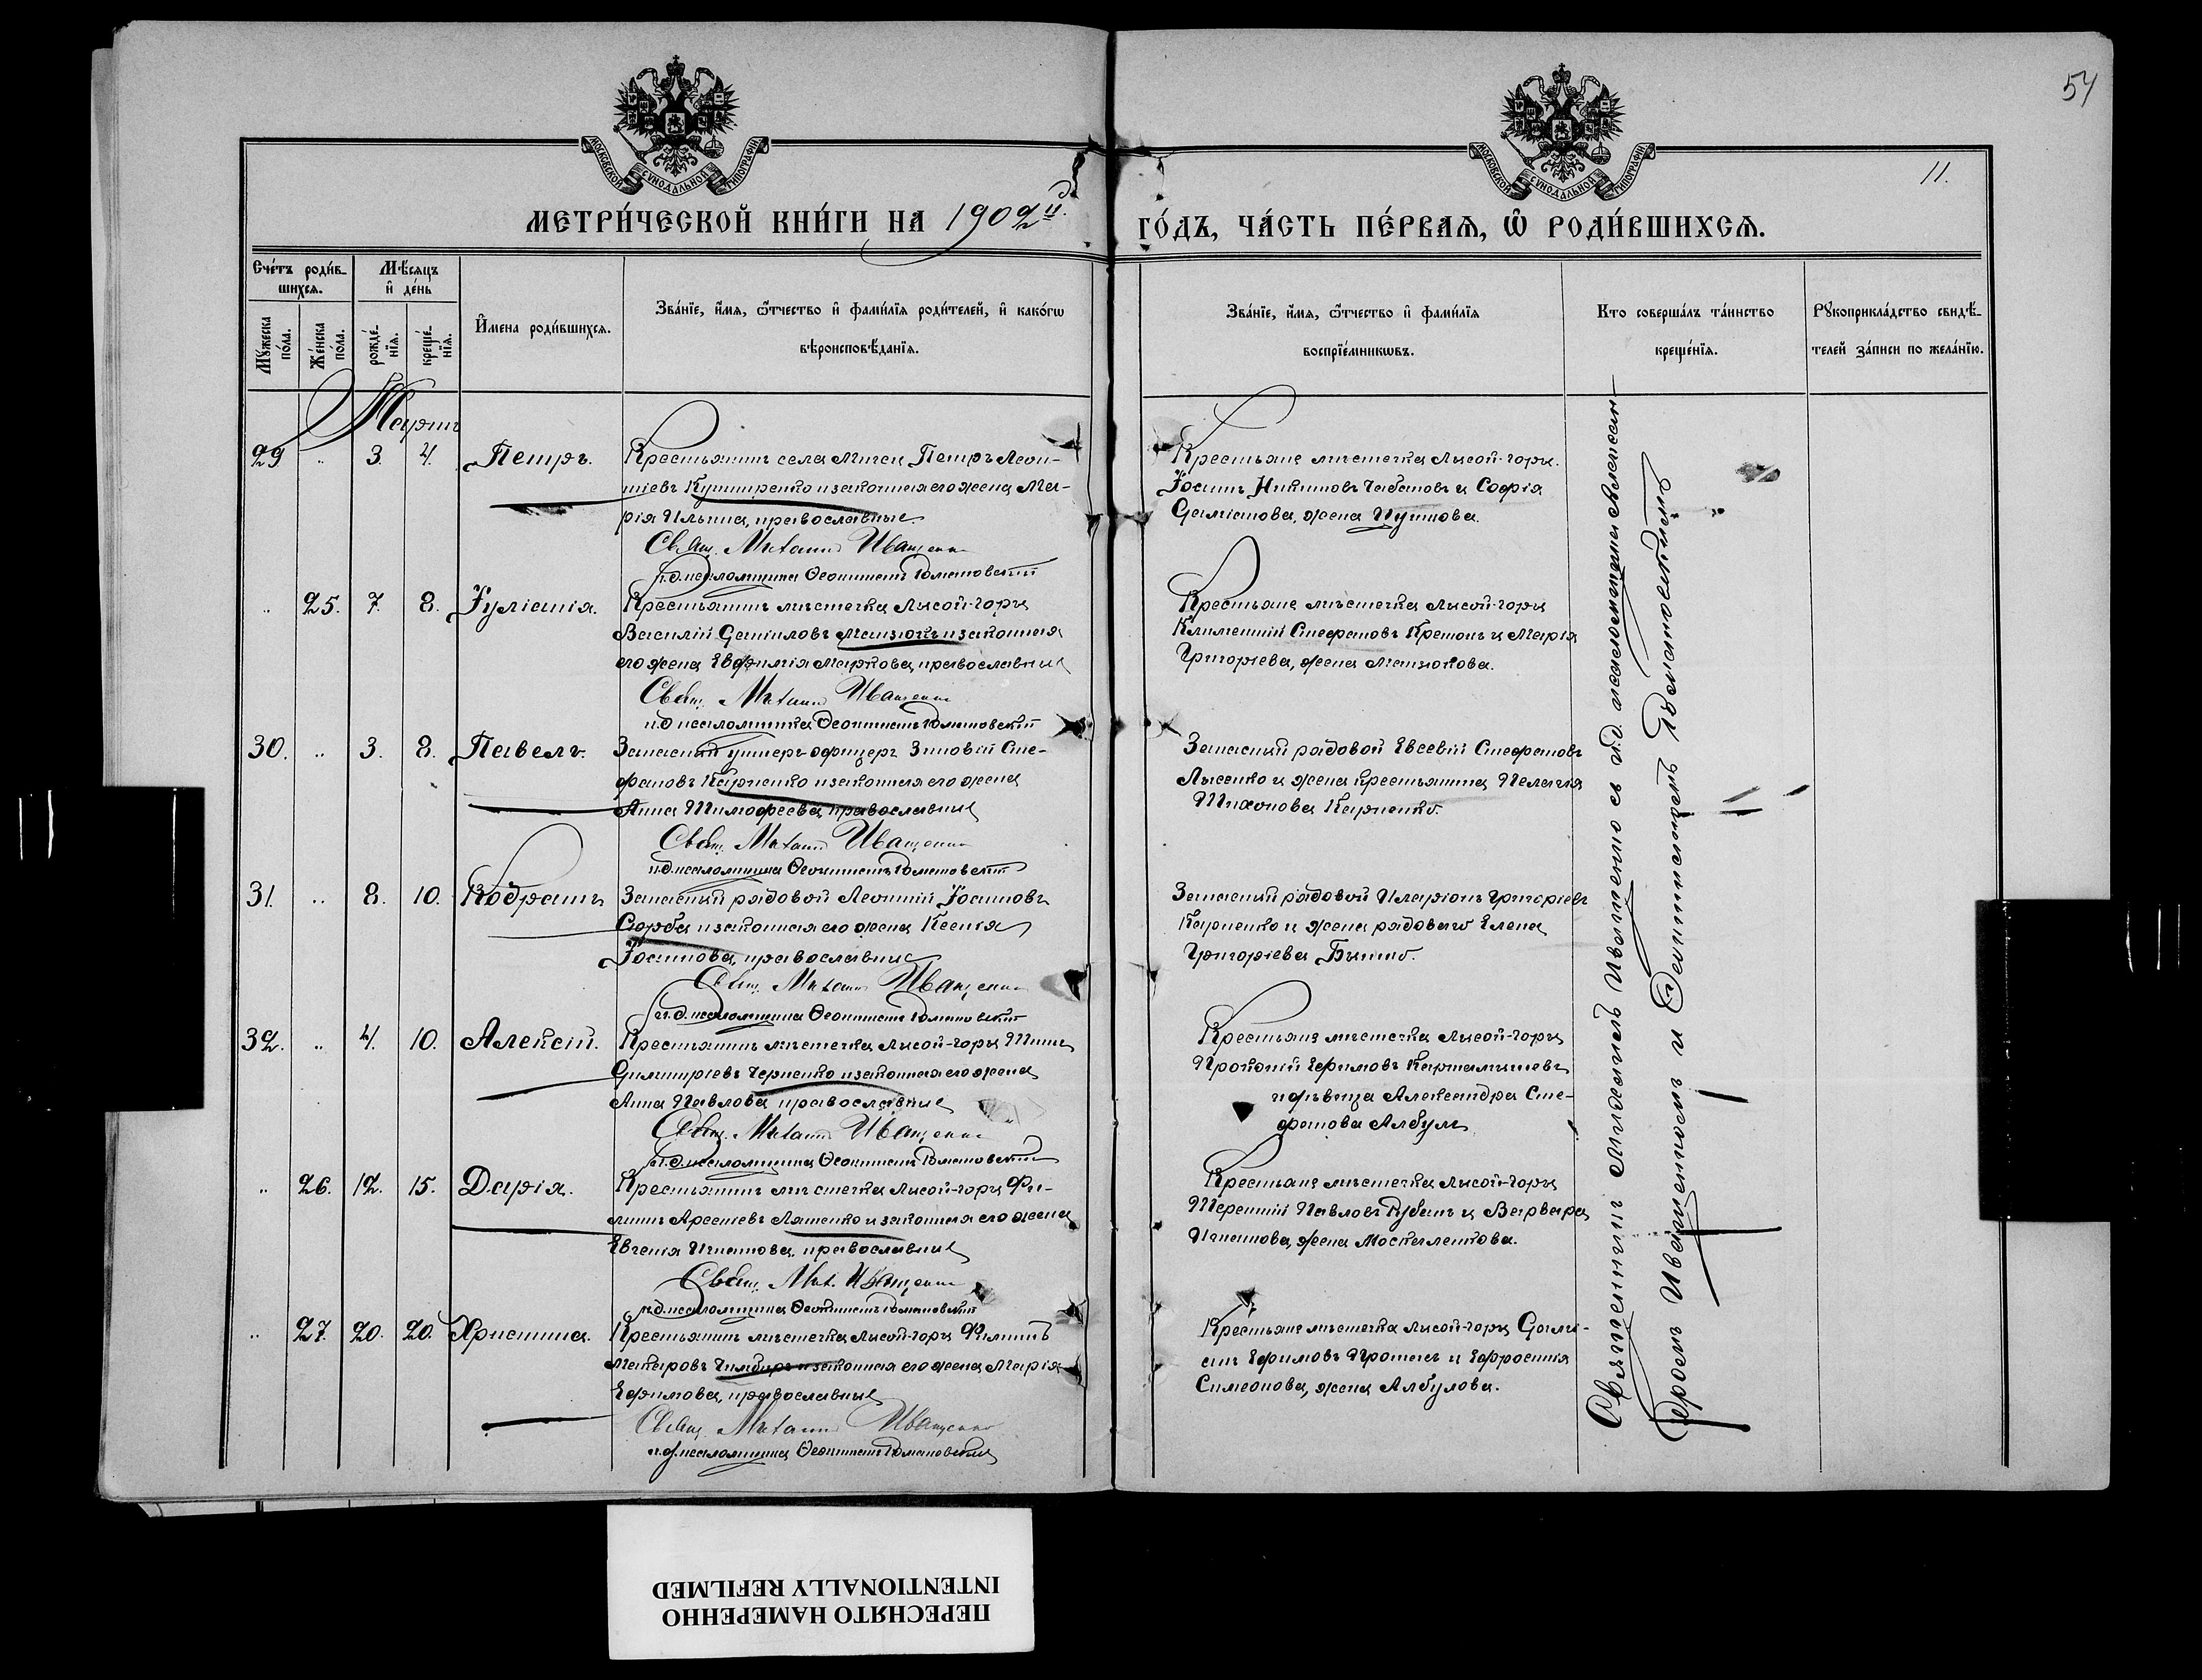 54
11.
МОСКОВСКОЙ СѴНОДАЛЬНОЙ ТИПОГРАФІИ
МОСКОВСКОЙ СѴНОДАЛЬНОЙ ТИПОГРАФІИ
МЕТРИ́ЧЕСКОЙ КНИ́ГИ НА 1902й. ГО́ДЪ, ЧА́СТЬ ПЕ́РВАѦ, Ѽ РОДИ́ВШИХСѦ.
Сче́тъ роди́в-
шихсѧ.
Мꙋ́жеска по́ла.
Же́нска по́ла.
Мѣ́сѧцъ
и҆ де́нь
рожде́-
нїѧ.
креще́-
нїѧ.
И҆мена роди́вшихсѧ.
Зва́нїе, и҆́мѧ, ѻ҆́тчество и҆ фами́лїѧ роди́телей, и҆ како́гѡ
вѣроисповѣ́данїѧ.
Зва́нїе, и҆́мѧ, ѻ҆́тчество и҆ фами́лїѧ
воспрїе́мникѡвъ.
Кто соверша́лъ та́инство
креще́нїѧ.
Рꙋкоприкла́дство свидѣ́-
телей за́писи по жела́нїю.
Мартъ
29 .. 3. 4. Петръ.
Крестьянинъ села Петръ Леон-
тіевъ Кушниренко и законная его жена Ма-
рія Ильина, православные.
Свящ. Михаилъ Иващенко
и.д. псаломщика Ѳеоктистъ Романовскій
Крестьяне мѣстечка Лысой-горы.
Іоаннъ Никитовъ Чабановъ и Софія
Даміанова, жена
.. 25. 7. 8. Іуліанія.
Крестьянинъ мѣстечка Лысой-горы
Василій Даніиловъ и законная
его жена Евфимія Маркова, православные
Свящ. Михаилъ Иващенко
и.д. псаломщика Ѳеоктистъ Романовскій
Крестьяне мѣстечка Лысой-горы
Климентій Стефановъ и Марія
Григоріева, жена
30. .. 3. 8. Павелъ.
Запасный унтеръ-офицеръ Зиновій Сте-
фановъ Карпенко и законная его жена
Анна Тимофеева, православные
Свящ. Михаилъ Иващенко
и.д. псаломщика Ѳеоктистъ Романовскій
Запасный рядовой Евсевій Стефановъ
Лысенко и жена крестьянина Пелагія
Тихонова Карпенко.
31. .. 8. 10. Кодратъ
Запасный рядовой Леонтій Іоанновъ
Сорба и законная его жена Ксенія
Іоаннова, православные
Свящ. Михаилъ Иващенко
и.д. псаломщика Ѳеоктистъ Романовскій
Запасный рядовой Иларіонъ Григоріевъ
Карпенко и жена рядового Елена
Григоріева
32. .. 4. 10. Алексій.
Крестьянинъ мѣстечка Лысой-горы Титъ
Димитріевъ Черненко и законная его жена
Анна Павлова, православные
Свящ. Михаилъ Иващенко
и.д. псаломщика Ѳеоктистъ Романовскій
Крестьяне мѣстечка Лысой-горы
Прокопій Ефимовъ
и дѣвица Александра Сте-
фанова Албулъ
.. 26. 12. 15. Дарія.
Крестьянинъ мѣстечка Лысой-горы Фи-
липпъ Арсеніевъ Ляшенко и законная его жена
Евгенія Игнатова, православные
Свящ. Мих. Иващенко
и.д. псаломщика Ѳеоктистъ Романовскій
Крестьяне мѣстечка Лысой-горы
Терентій Павловъ Рубанъ и Варвара
Игнатова, жена Москаленкова.
.. 27. 20. 20. Христина.
Крестьянинъ мѣстечка Лысой-горы Филиппъ
Макаровъ и законная его жена Марія
Ефимова, православные
Свящ. Михаилъ Иващенко
и.д. псаломщика Ѳеоктистъ Романовскій
Крестьяне мѣстечка Лысой-горы Дамі-
анъ Ефимовъ и Ефросинія
Симеонова, жена Албулова.
Священникъ Михаилъ Иващенко съ и.д. псаломщика Александ-
ромъ Иващенкомъ и Ѳеоктистомъ Романовскимъ
ПЕРЕСНЯТО НАМЕРЕННО
INTENTIONALLY REFILMED